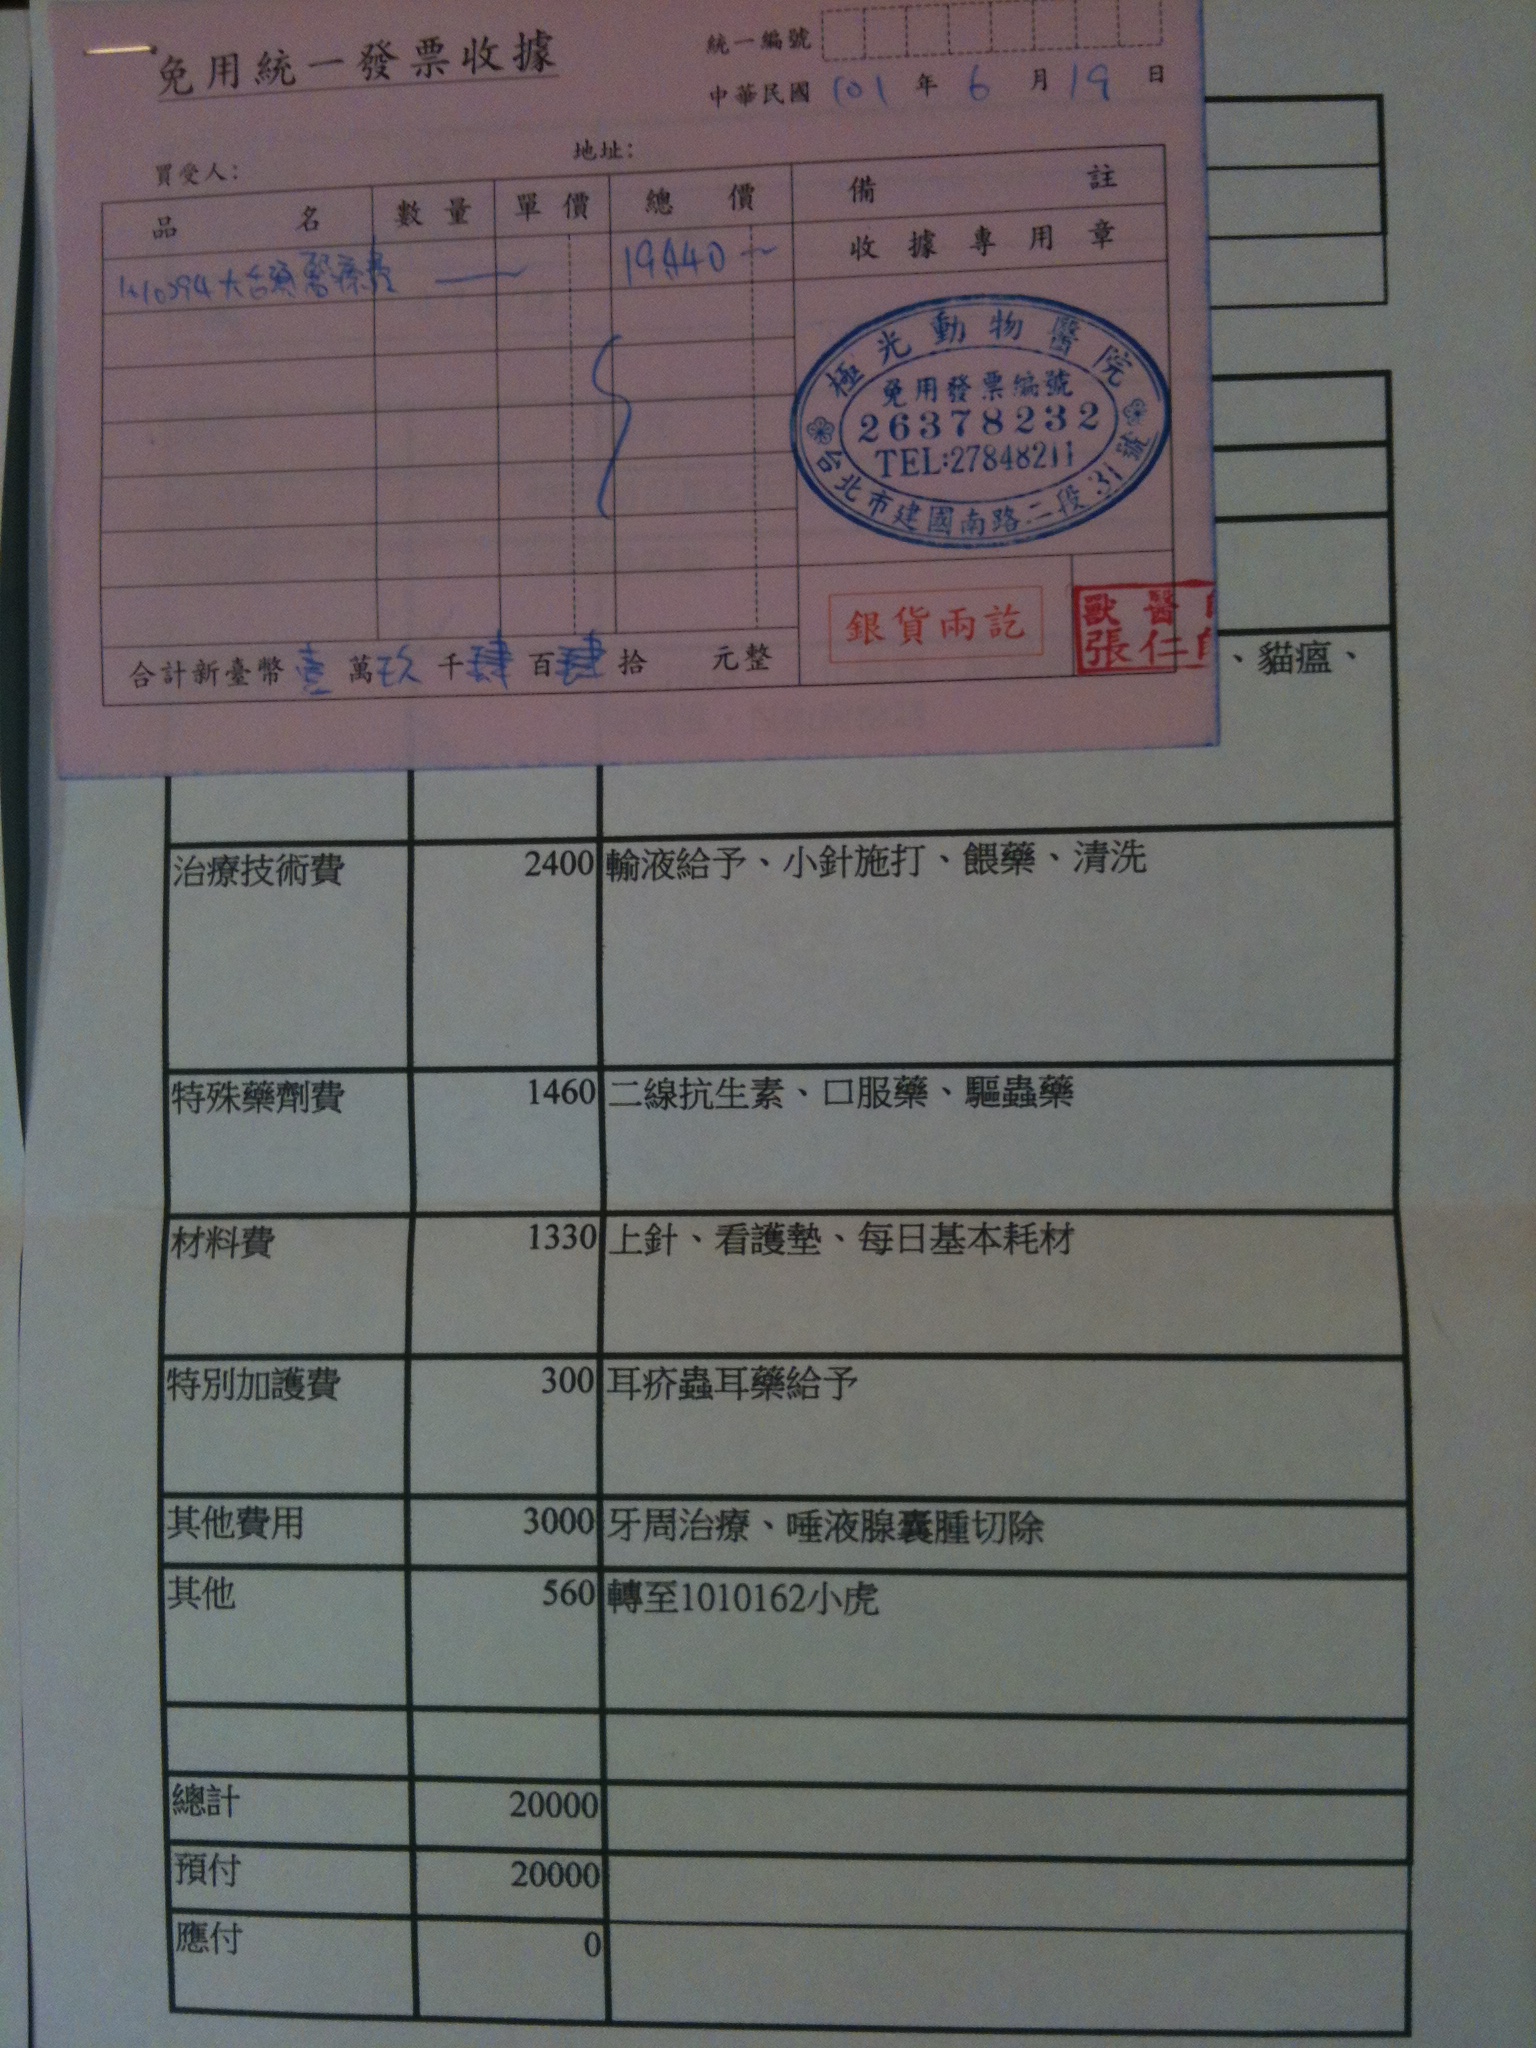 免用統一發票收據
統一編號
中華民國 101 年 6 月 19 日
買受人： 地址：
品名 數量 單價 總價 備註
收據專用章
醫療費 19440
極光動物醫院
免用發票編號
26378232
TEL:27848211
台北市建國南路二段31號
銀貨兩訖
獸醫
張仁
合計新臺幣 壹 萬 玖 千 肆 百 肆 拾 元整
、貓瘟、
治療技術費 2400 輸液給予、小針施打、餵藥、清洗
特殊藥劑費 1460 二線抗生素、口服藥、驅蟲藥
材料費 1330 上針、看護墊、每日基本耗材
特別加護費 300 耳疥蟲耳藥給予
其他費用 3000 牙周治療、唾液腺囊腫切除
其他 560 轉至1010162小虎
總計 20000
預付 20000
應付 0